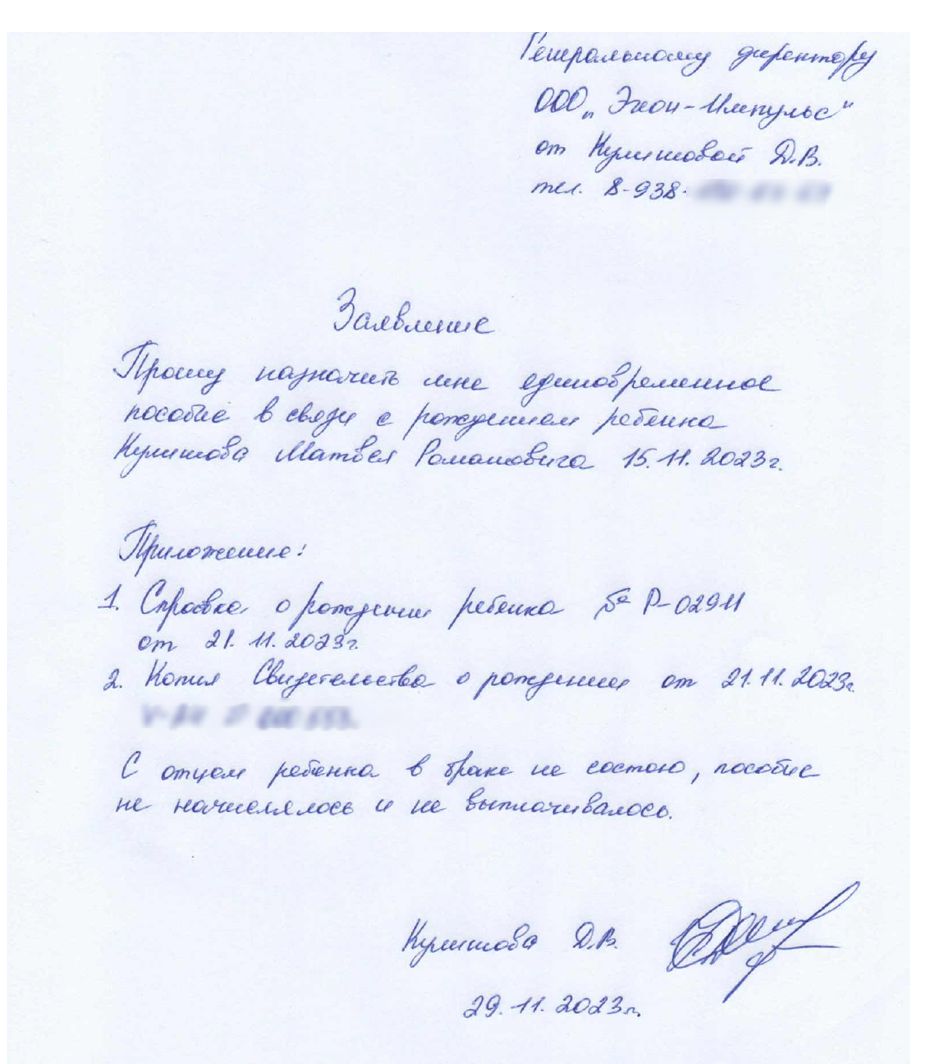 Генеральному директору
ООО „Экон-Импульс“
от Кулишовой Д.В.
тел. 8-938-
Заявление
Прошу назначить мне единовременное
пособие в связи с рождением ребенка
Кулишова Матвея Романовича 15.11.2023г.
Приложение:
1. Справка о рождении ребенка № Р-02911
от 21.11.2023г.
2. Копия Свидетельства о рождении от 21.11.2023г.
С отцом ребенка в браке не состою, пособие
не начислялось и не выплачивалось.
Кулишова Д.В.
29.11.2023г.